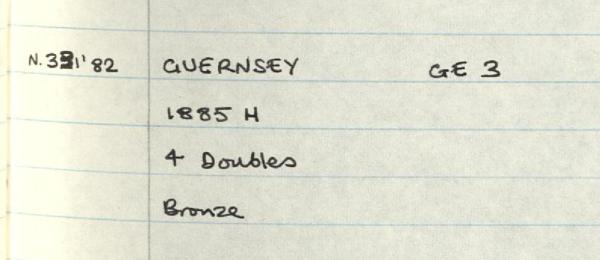 N. '82 GUERNSEY GE 3
1885 H
4 Doubles
Bronze